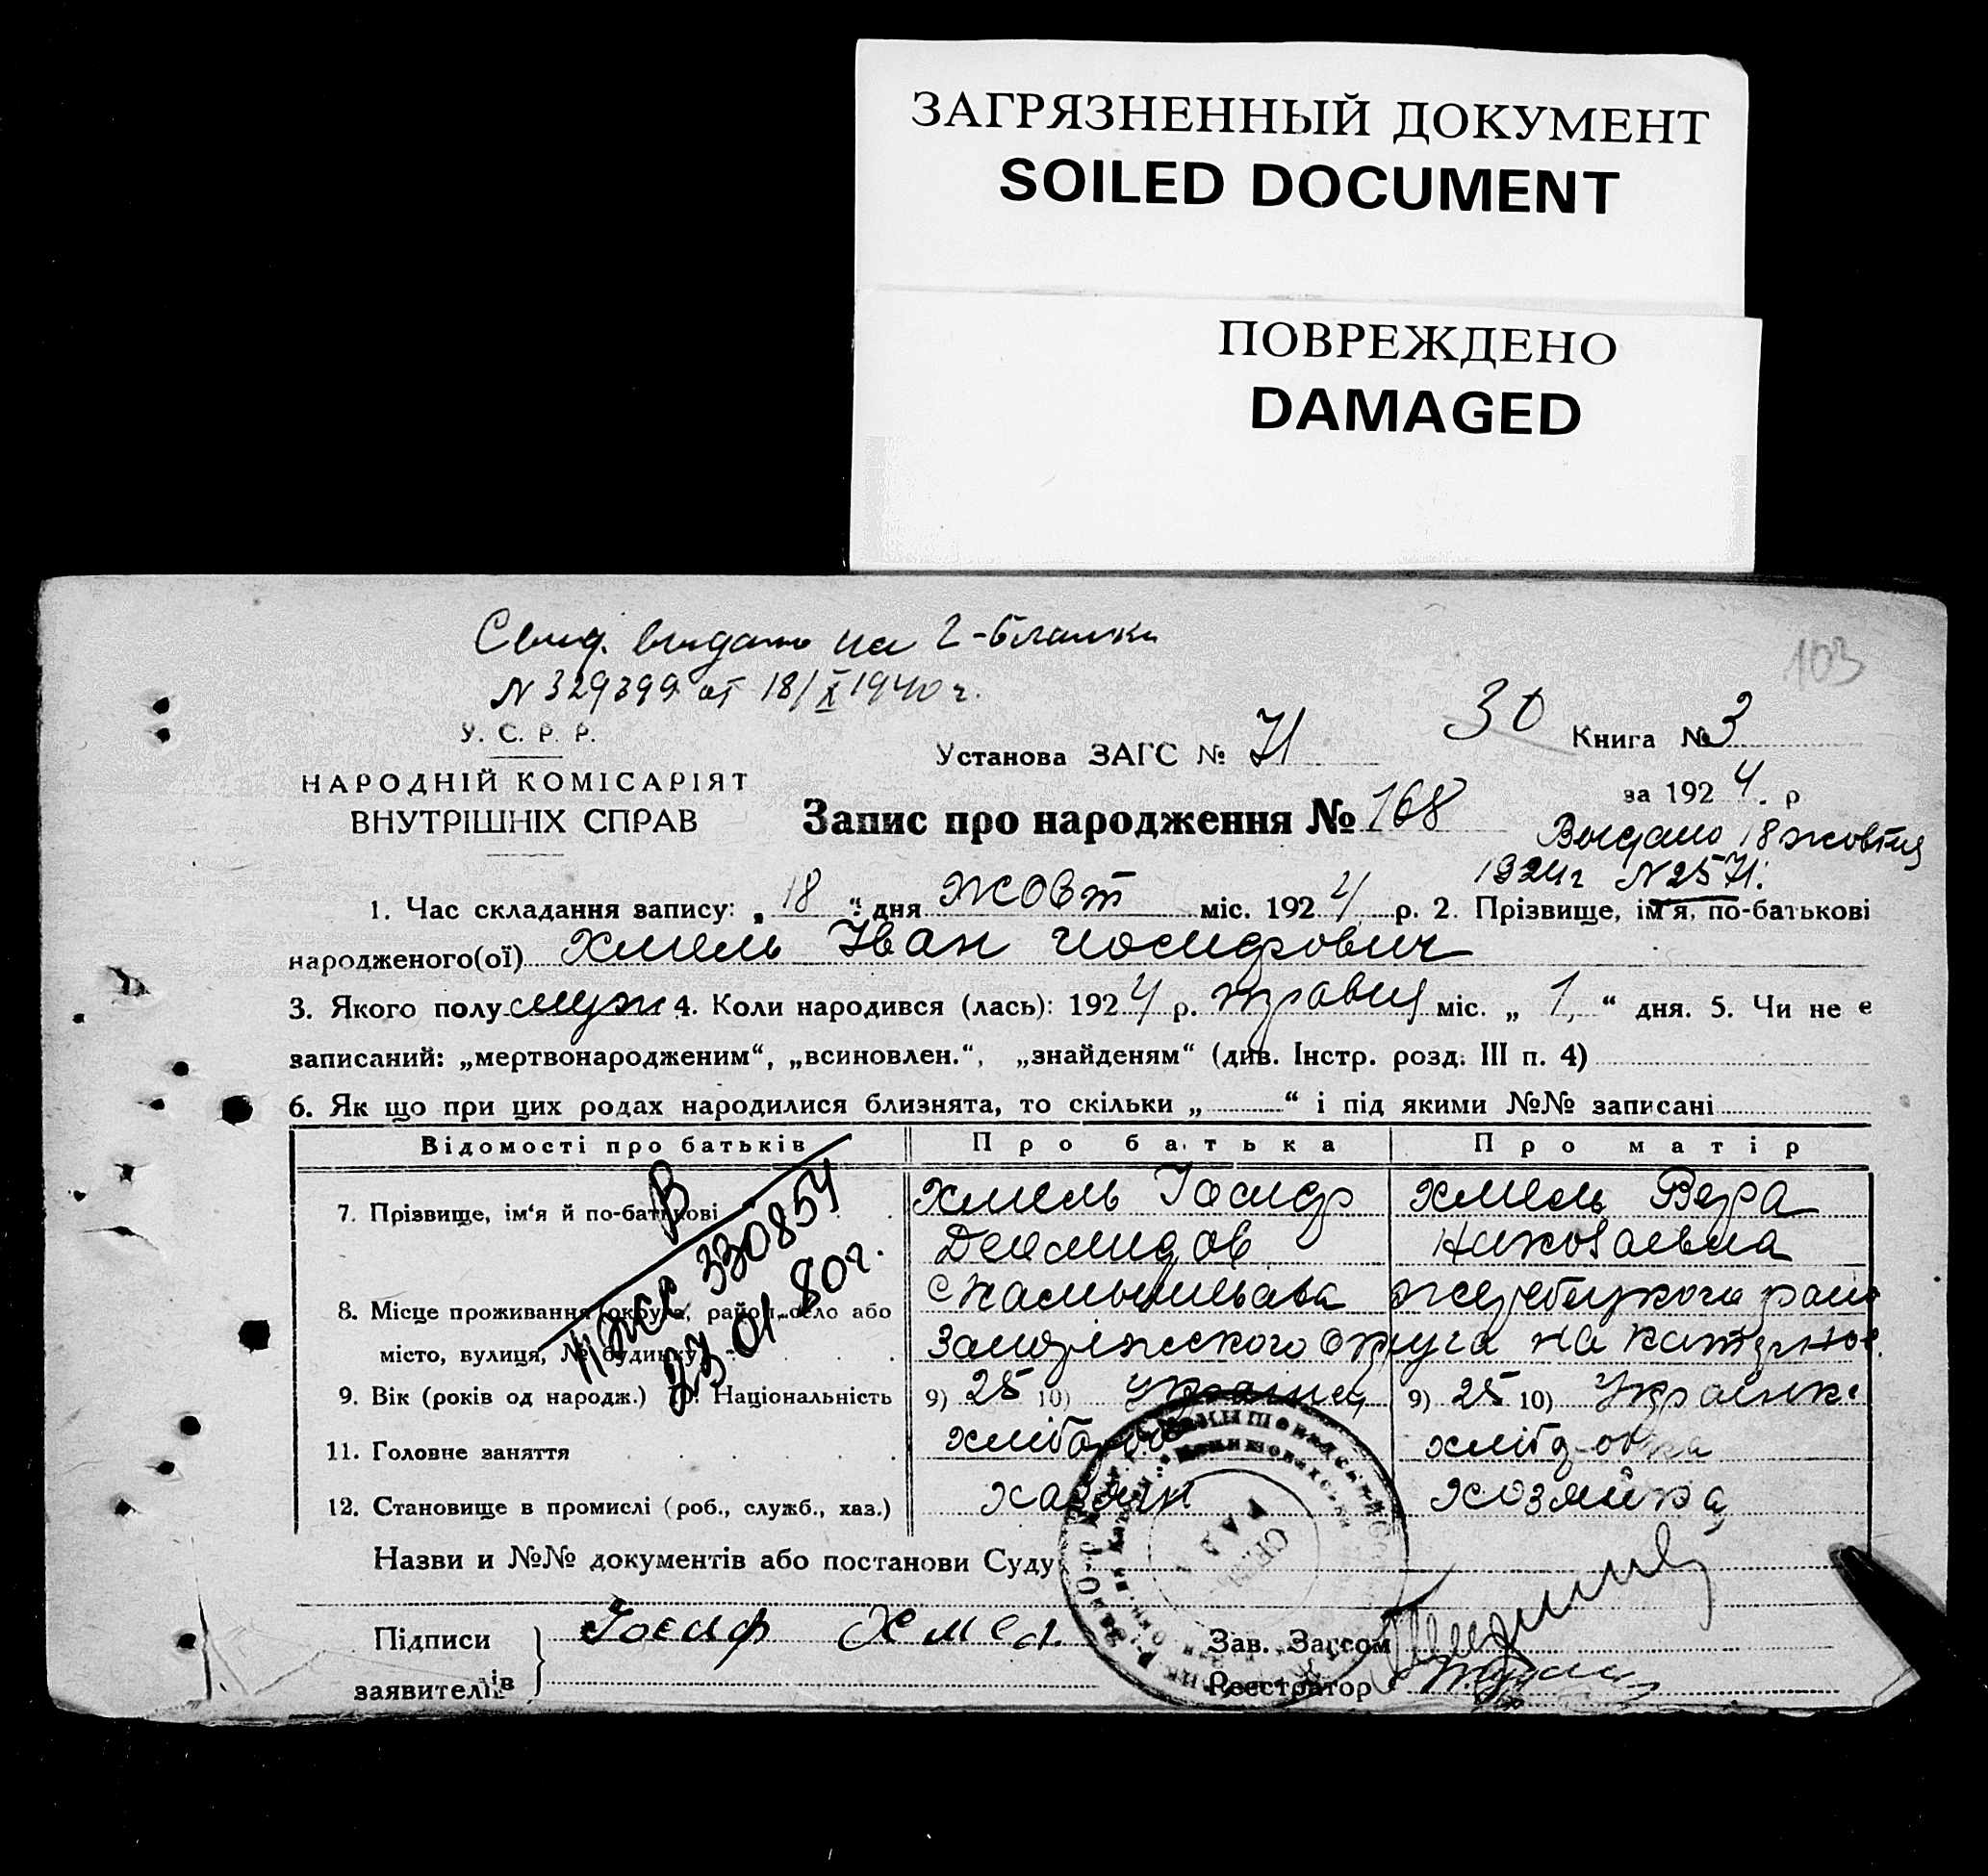 ЗАГРЯЗНЕННЫЙ ДОКУМЕНТ
SOILED DOCUMENT
ПОВРЕЖДЕНО
DAMAGED
Свид. видано на 2-бланки
N 329399 от 18/X 1940 г.
103
У. С. Р. Р.
НАРОДНІЙ КОМІСАРІЯТ
ВНУТРІШНІХ СПРАВ
Установа ЗАГС № 71
30 Книга № 3
за 1924. р
Запис про народження № 168
Выдано 18 жовтня
1924 г N 2571.
1. Час складання запису: „ 18 “ дня жовт міс. 1924 р. 2. Прізвище, ім'я, по-батькові
народженого(ої) Хмель Іван Иосифович
3. Якого полу муж 4. Коли народився (лась): 1924 р. травня міс. „ 1, “ дня. 5. Чи не е
записаний: „мертвонародженим“, „всиновлен.“, „знайденям“ (див. Інстр. розд. III п. 4)
6. Як що при цих родах народилися близнята, то скільки „ “ і під якими №№ записані
Відомості про батьків Про батька Про матір
7. Прізвище, ім'я й по-батькові Хмель Іосиф Хмель Вера
Демидов Николаевна
8. Місце проживання (округа, район, село або
місто, вулиця, № будинку) Запоріжского округа на
В
ІІ ЖС 330854
23.01.80г.
9. Вік (років од народж.) 10. Національність 9) 25 10) Українец 9) 25 10) Українка
11. Головне заняття
12. Становище в промислі (роб., служб., хаз.) хазяин хозяйка
Назви и №№ документів або постанови Суду
Підписи Іосиф Хмел.
заявителів
Зав. Загсом
Реестратор